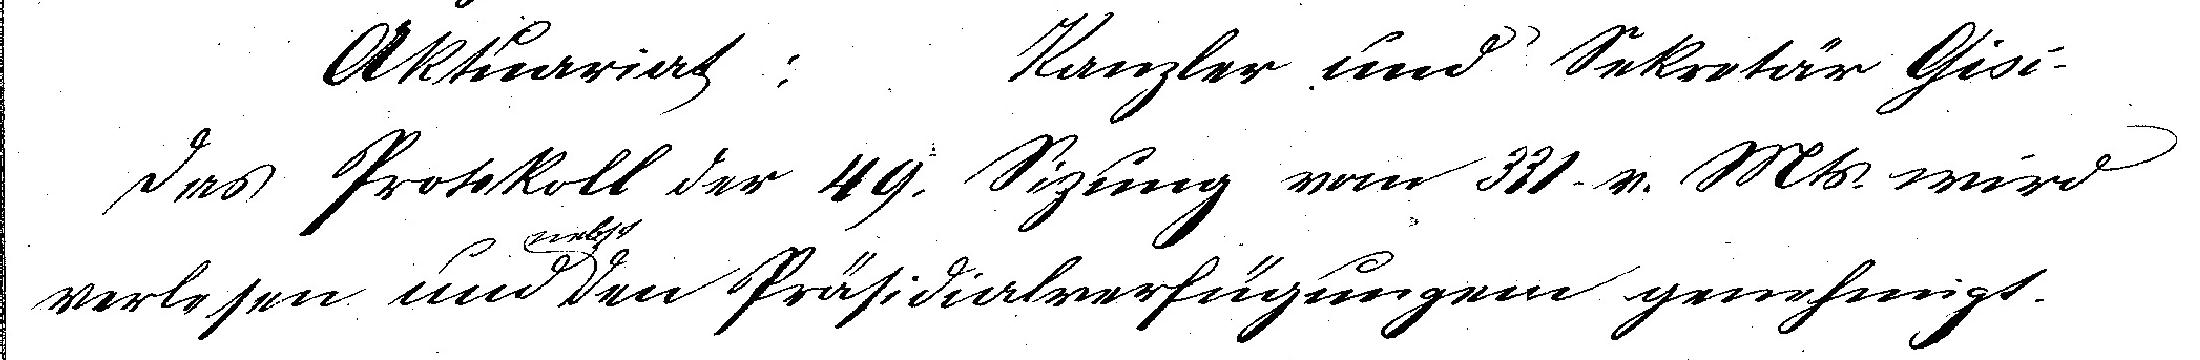 Aktuariat : Kanzler und Sekretär Gisi.
Das Protokoll der 49. Sizung vom 31. v. Mts. wird
verlesen und nebst den Präsidialverfügungen genehmigt.